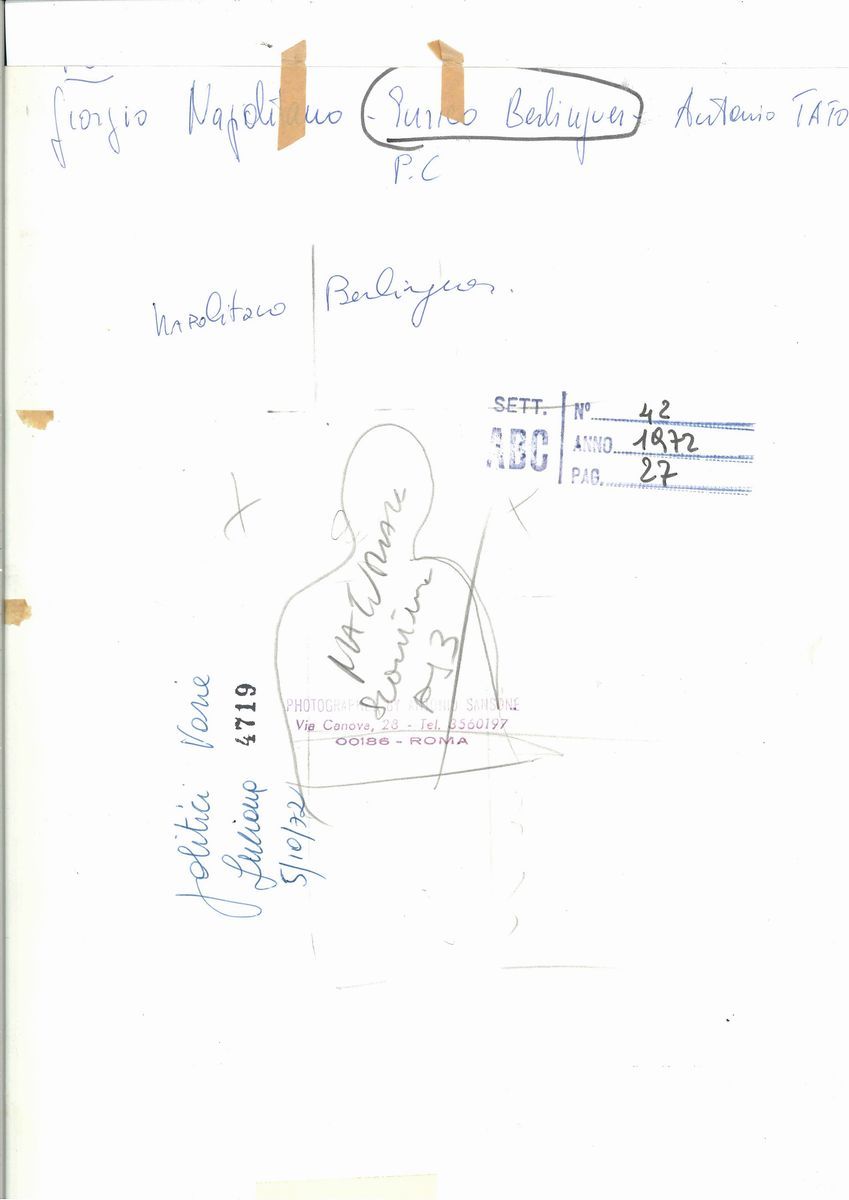 Giorgio Napolitano - Enrico Berlinguer - Antonio TATO
P.C
Napolitano | Berlinguer.
SETT. ABC
Nº 42
ANNO 1972
PAG. 27
MATERIALE
PHOTOGRAPHED BY ANTONIO SANSONE
Via Canova, 28 - Tel. 3560197
00186 - ROMA
Politici Varie
4719
5/10/72